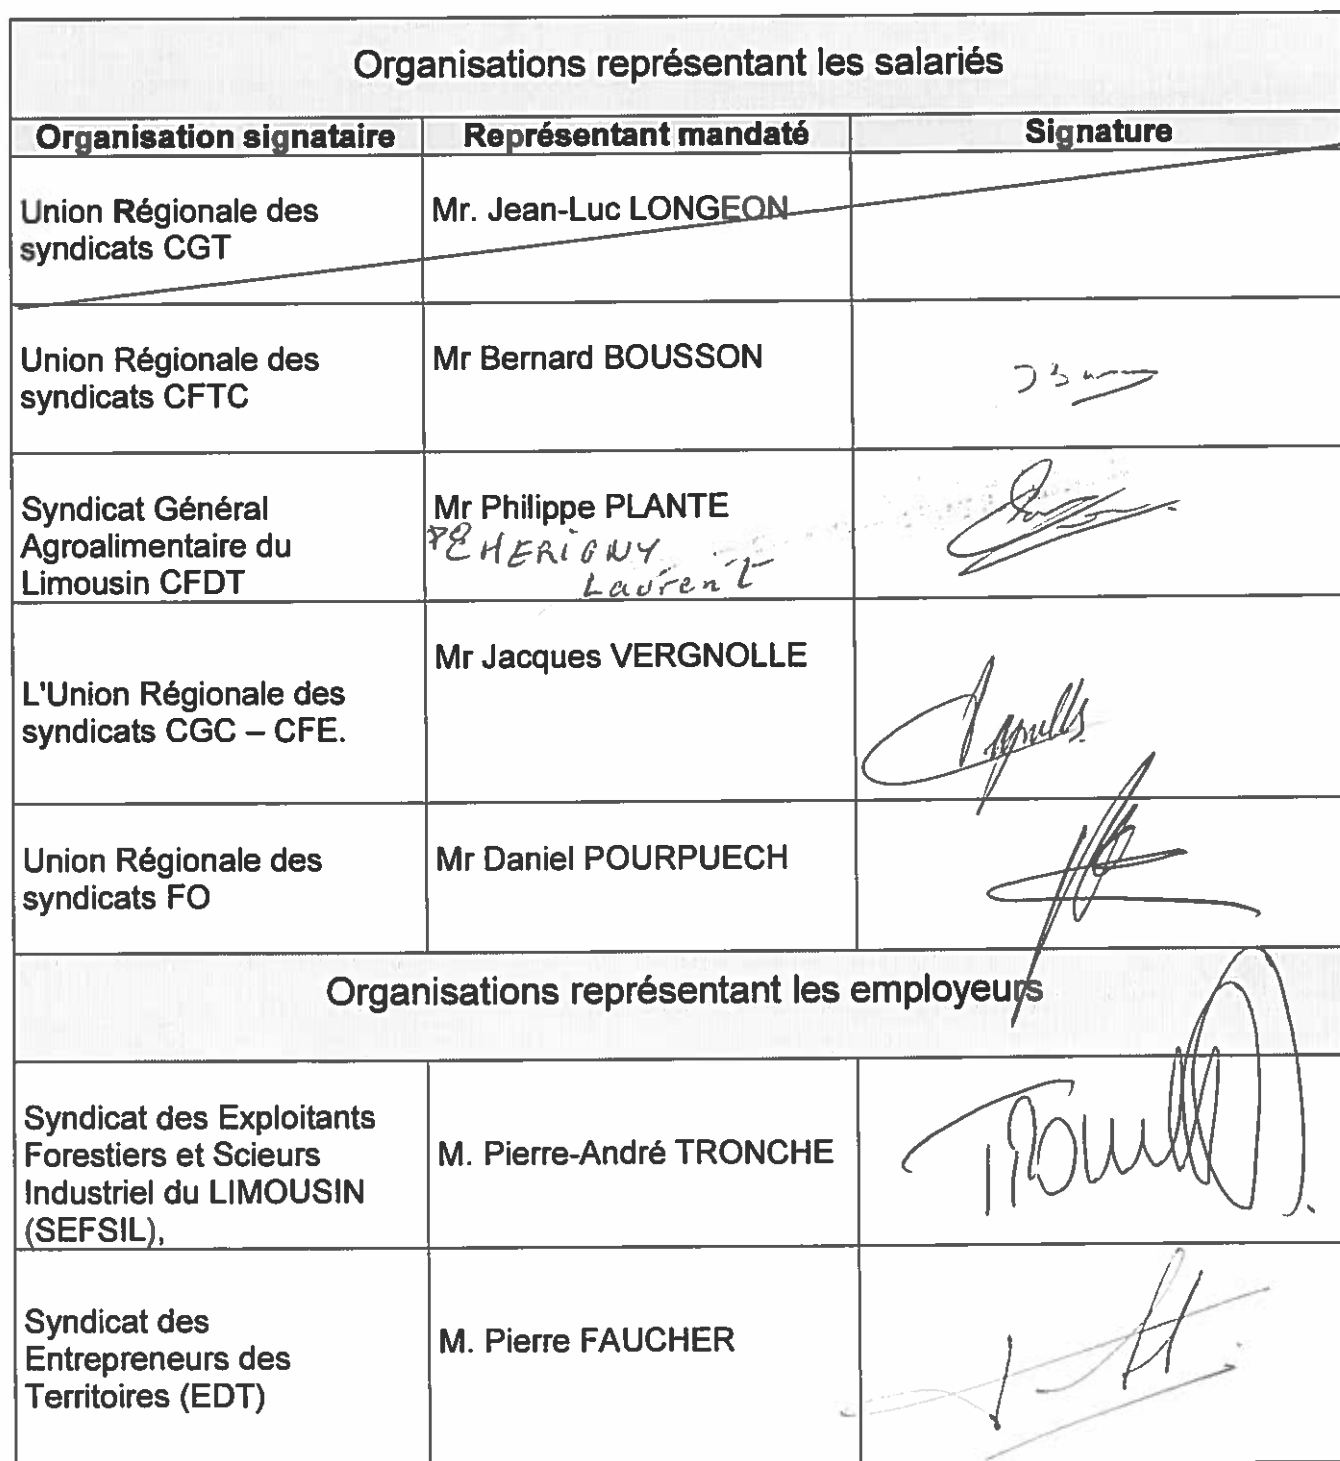 Organisations représentant les salariés
Organisation signataire Représentant mandaté Signature
Union Régionale des
syndicats CGT
Mr. Jean-Luc LONGEON
Union Régionale des
syndicats CFTC
Mr Bernard BOUSSON
Syndicat Général
Agroalimentaire du
Limousin CFDT
Mr Philippe PLANTE
HERIGNY
Laurent
L'Union Régionale des
syndicats CGC – CFE.
Mr Jacques VERGNOLLE
Union Régionale des
syndicats FO
Mr Daniel POURPUECH
Organisations représentant les employeurs
Syndicat des Exploitants
Forestiers et Scieurs
Industriel du LIMOUSIN
(SEFSIL),
M. Pierre-André TRONCHE
Syndicat des
Entrepreneurs des
Territoires (EDT)
M. Pierre FAUCHER